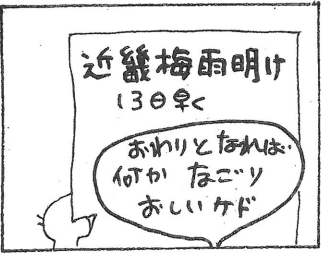 近畿梅雨明け
13日早く
おわりとなれば
何か なごり
おしいケド